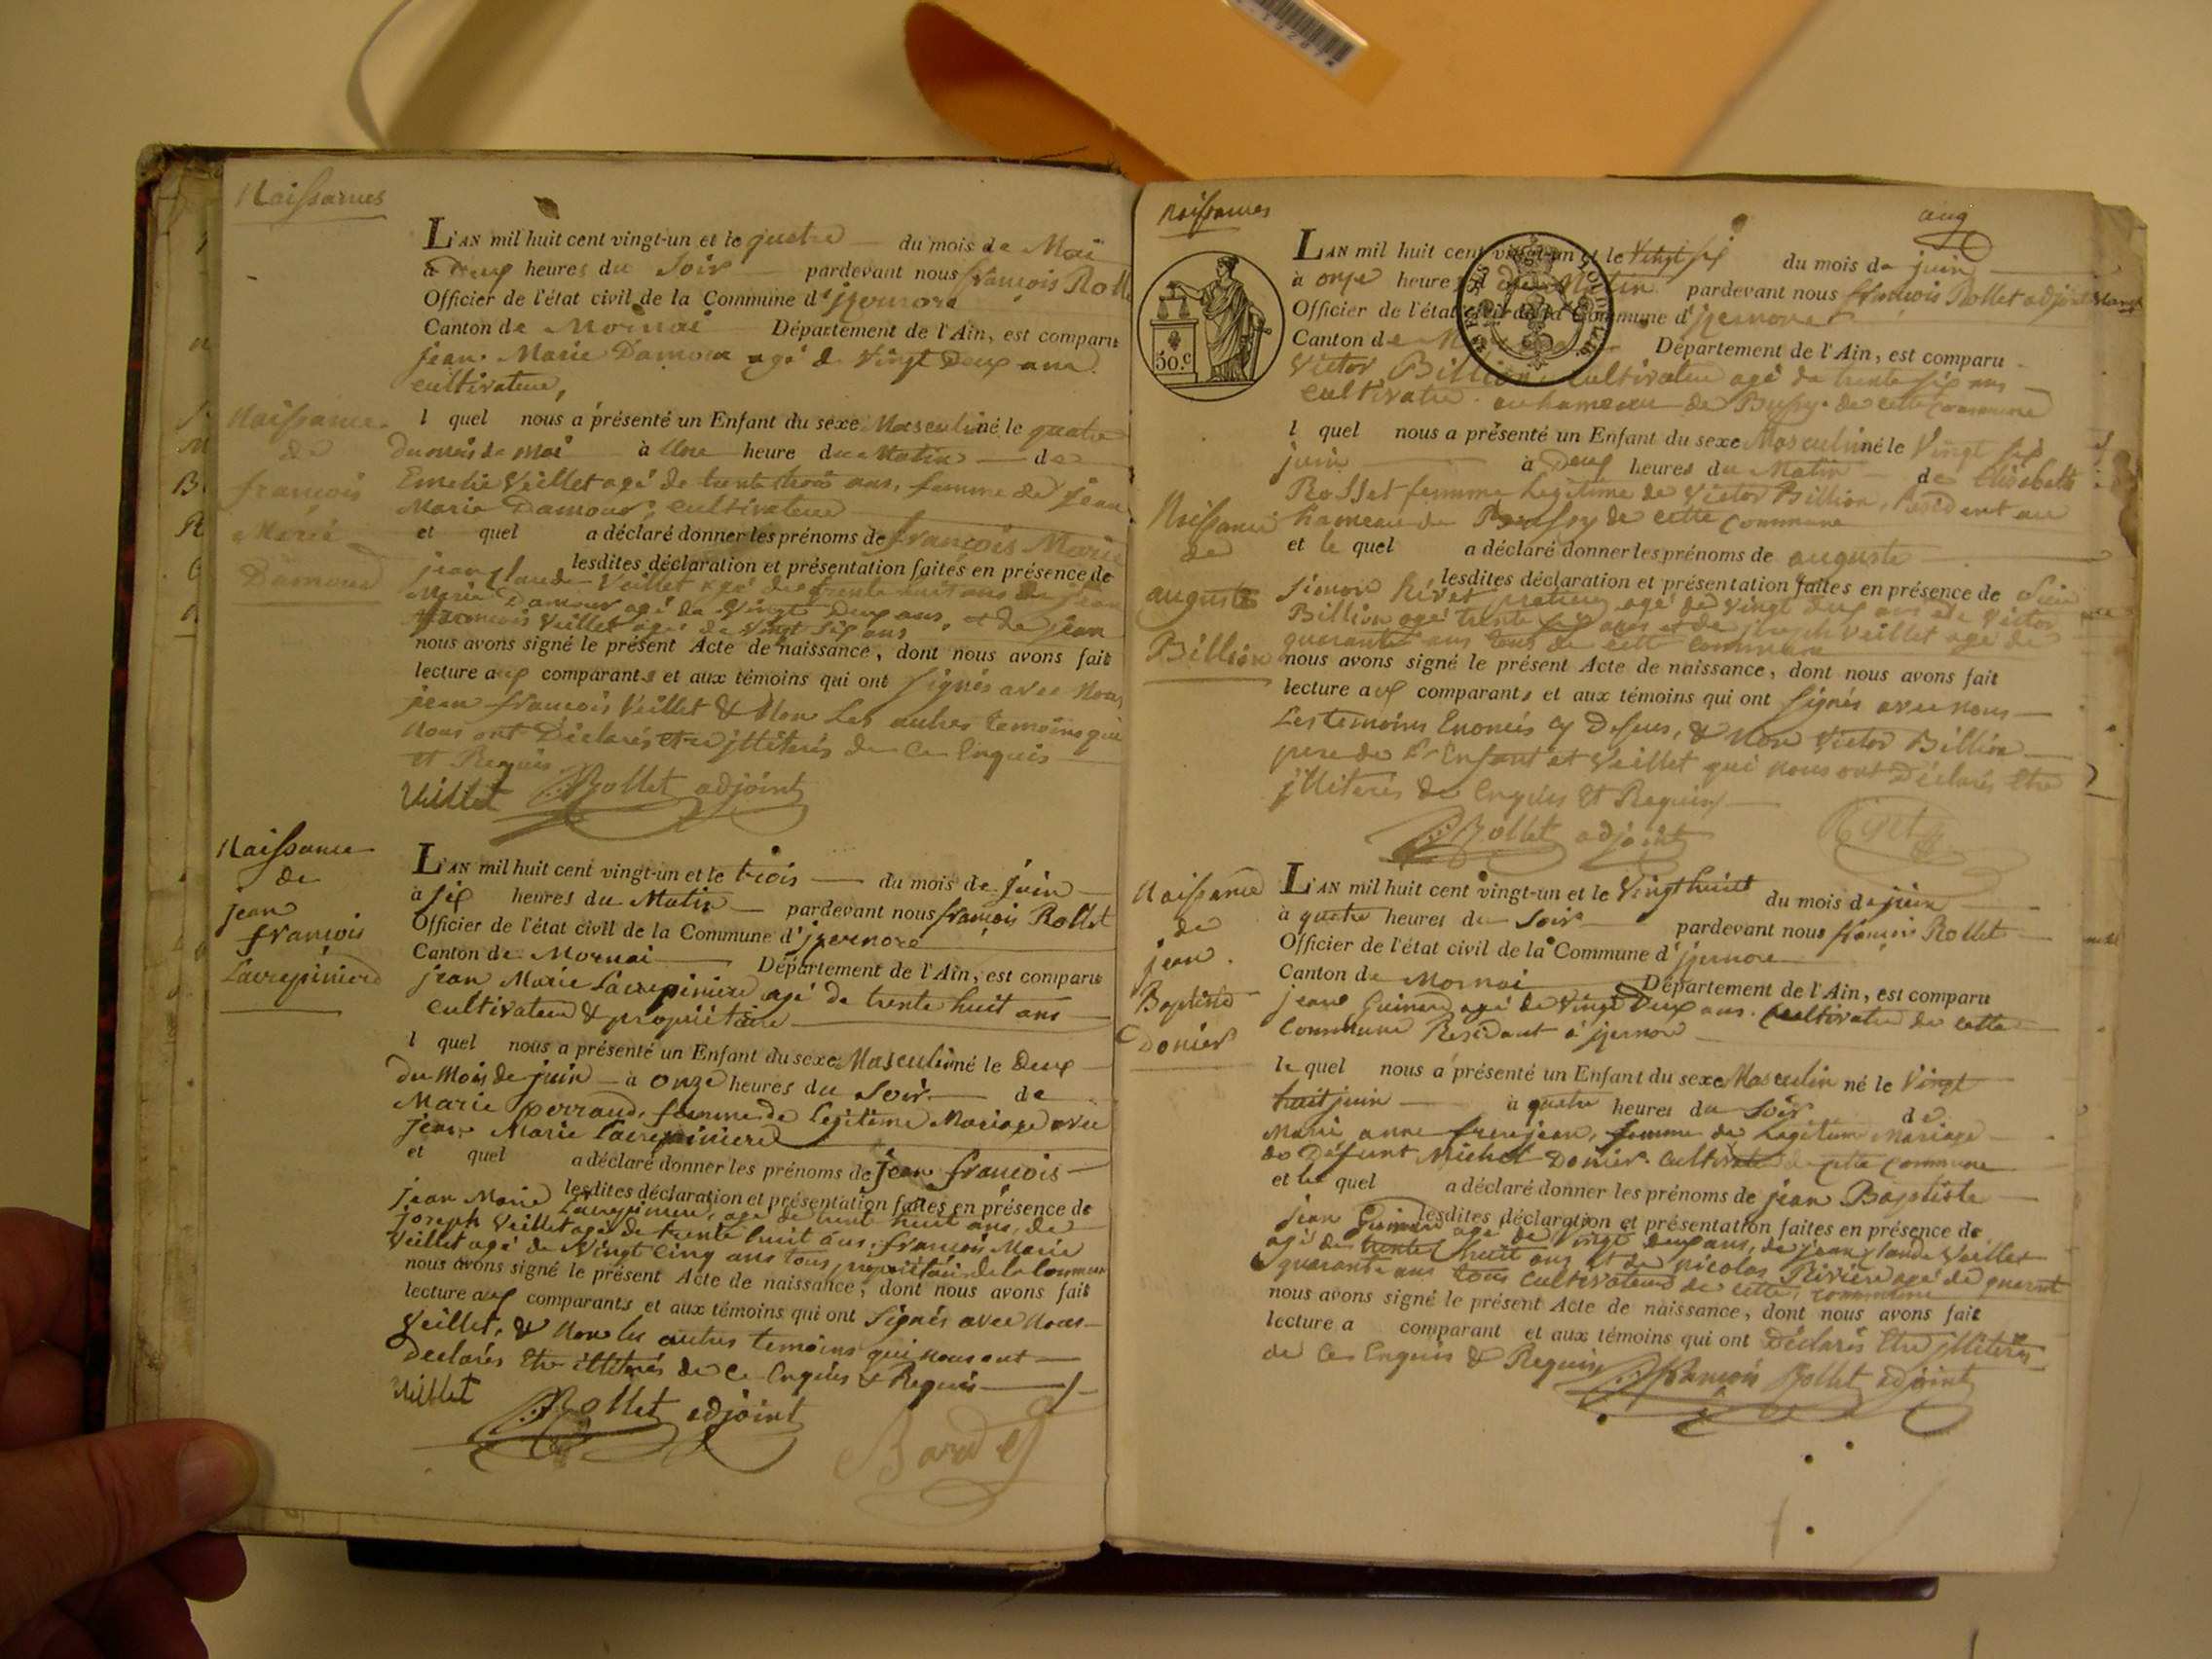 Naissances
L'AN mil huit cent vingt-un et le quatre du mois de Mai
à Deux heures du Soir pardevant nous françois Rollet
Officier de l'état civil de la Commune d'jzernore
Canton de Mornai Département de l'Ain, est comparu
jean Marie Damour agé de Vingt Deux ans
cultivateur,
l quel nous a présenté un Enfant du sexe Masculin né le quatre
du mois de Mai à Une heure du Matin de
Emelie Veillet agé de trente trois ans, femme de jean
Marie Damour cultivateur
et quel a déclaré donner les prénoms de françois Marie
lesdites déclaration et présentation faites en présence de
jean Claude Veillet agé de trente huit ans de jean
Marie Damour agé de Vingt Deux ans, et de jean
françois Veillet agé de Vingt Six ans
nous avons signé le présent Acte de naissance, dont nous avons fait
lecture aux comparants et aux témoins qui ont Signés avec Nous
jean françois Veillet & Non Les autres temoins qui
Nous ont Déclarés etre jlliterés de Ce Enquis
et Requis
Veillet Rollet adjoint
Naissance
de
françois
Marie
Damour
Naissance
de
jean
françois
Lacrepiniere
L'AN mil huit cent vingt-un et le trois du mois de juin
à Six heures du Matin pardevant nous françois Rollet
Officier de l'état civil de la Commune d'jzernore
Canton de Mornai Département de l'Ain, est comparu
jean Marie Lacrepiniere agé de trente huit ans
cultivateur & propriétaire
l quel nous a présenté un Enfant du sexe Masculin né le Deux
du Mois de juin à onze heures du Soir de
Marie perraud, femme de Légitime Mariage avec
jean Marie Lacrepiniere
et quel a déclaré donner les prénoms de jean françois
lesdites déclaration et présentation faites en présence de
jean Marie Lacrepiniere, agé de trente huit ans, de
joseph Veillet agé de trente huit ans, françois Marie
Veillet agé de Vingt Cinq ans tous propriétaire de la Commune
nous avons signé le présent Acte de naissance, dont nous avons fait
lecture aux comparants et aux témoins qui ont Signés avec Nous
Veillet, & Non les autres temoins qui nous ont
Declarés Etre illiterés de Ce Enquis & Requis
Veillet Rollet adjoint
naissances
aug
30.c
L'AN mil huit cent vingt-un et le Vingt six du mois de juin
à onze heures du Matin pardevant nous françois Rollet adjoint
Officier de l'état civil de la Commune d'jzernore
Canton de Département de l'Ain, est comparu
Victor Billion, Cultivateur agé de trente six ans
cultivateur au hameau de Bussy de cette Commune
l quel nous a présenté un Enfant du sexe Masculin né le Vingt six
juin à Deux heures du Matin de Elisabeth
Rosset femme Legitime de Victor Billion, Résident au
hameau de Bussy de cette Commune
et le quel a déclaré donner les prénoms de auguste
lesdites déclaration et présentation faites en présence de Sieur
Simon agé de vingt deux ans de Victor
Billion agé trente six ans et de joseph Veillet agé de
quarante ans tous de cette Commune
nous avons signé le présent Acte de naissance, dont nous avons fait
lecture aux comparants et aux témoins qui ont Signés avec nous
Les temoins Enoncés cy Dessus, & Non Victor Billion
pere de l'Enfant et Veillet qui nous ont Déclarés Etre
jlliterés de Enquis Et Requis
Rollet adjoint
Naissance
de
auguste
Billion
Naissance
de
jean
Baptiste
Donier
L'AN mil huit cent vingt-un et le Vingt huit du mois de juin
à quatre heures du Soir pardevant nous françois Rollet
Officier de l'état civil de la Commune d'jzernore
Canton de Mornai Département de l'Ain, est comparu
jean Guinard agé de Vingt Deux ans Cultivateur de cette
Commune Residant à jzernore
le quel nous a présenté un Enfant du sexe Masculin né le Vingt
huit juin à quatre heures du Soir de
Marie anne frerejean, femme de Legitime Mariage
de Défunt Michel Donier Cultivateur de cette Commune
et le quel a déclaré donner les prénoms de jean Baptiste
lesdites déclaration et présentation faites en présence de
jean Guinard agé de Vingt deux ans, de jean Claude Veillet
agé de trente huit ans et de nicolas Riviere agé de quarante
quarante ans tous cultivateurs de cette commune
nous avons signé le présent Acte de naissance, dont nous avons fait
lecture a comparant et aux témoins qui ont Déclarés Etre jlliterés
de Ce Enquis & Requis françois Rollet adjoint